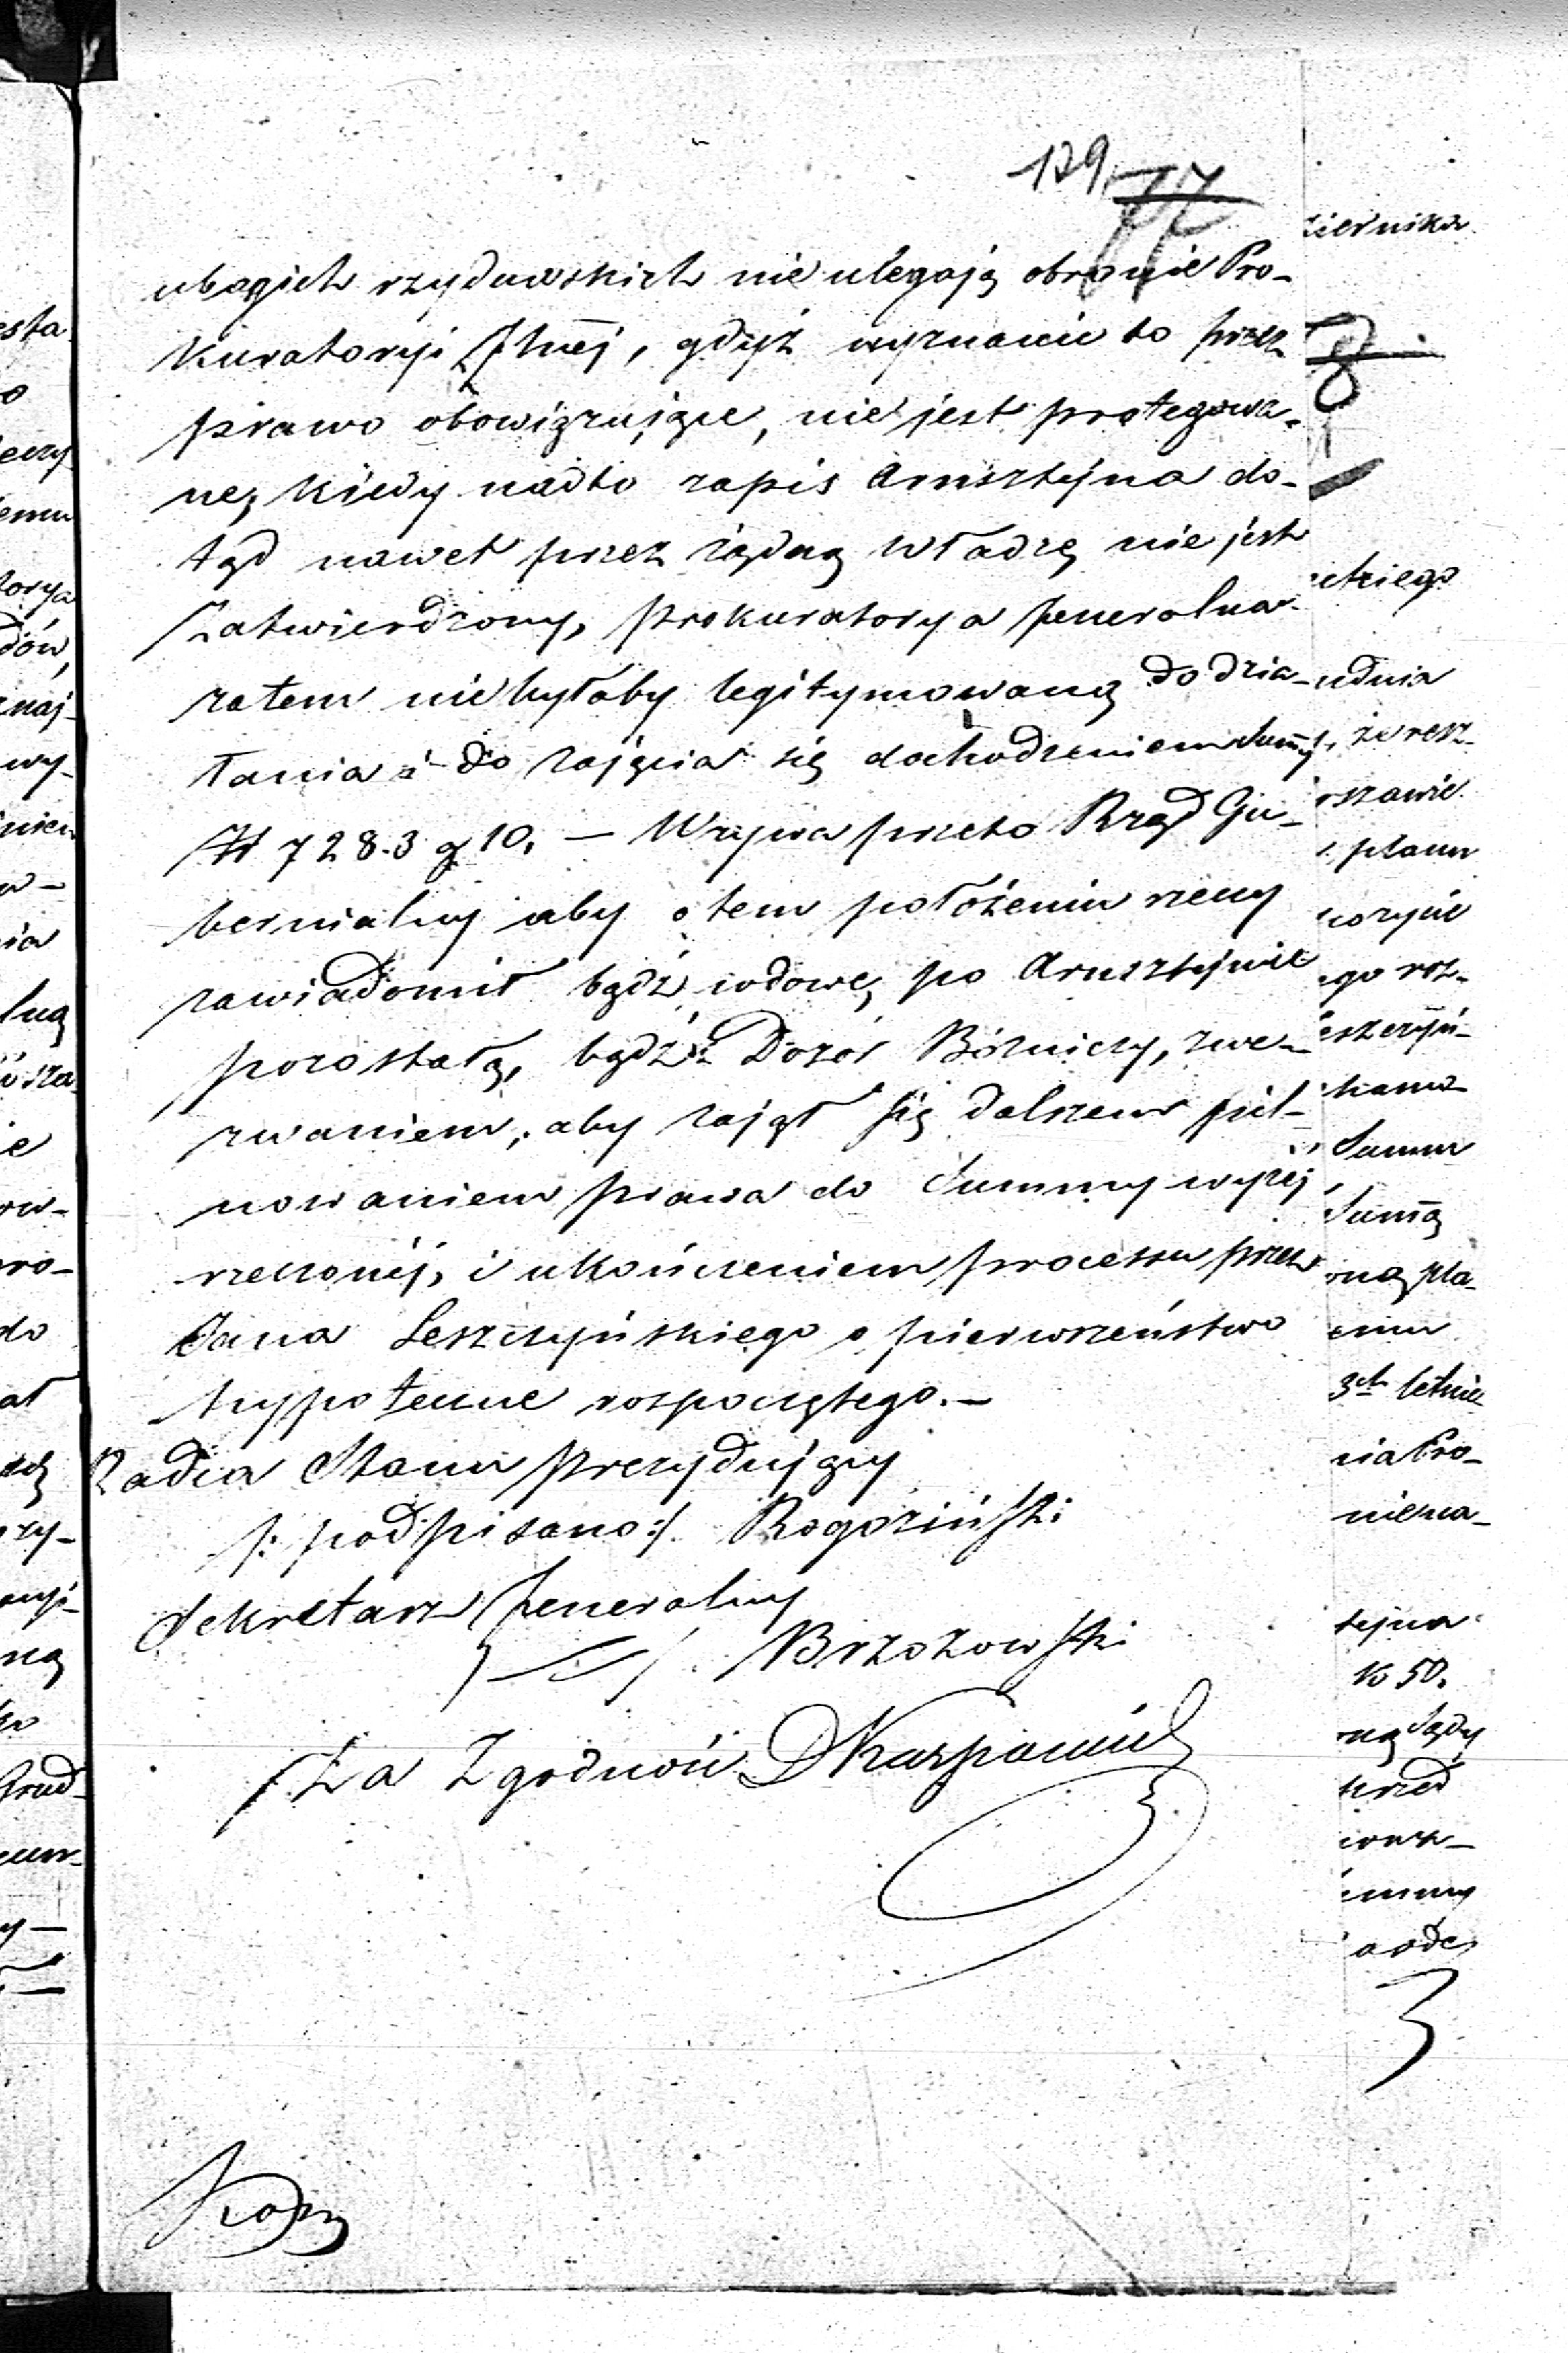 129 77
ubogich rzydowskich nie ulegają obronie Pro-
kuratoryi Jlnéj, gdyż wyznanie to przez
prawo obowiązujące, nie jest protegowa-
ne, kiedy nadto zapis Arnsztejna do-
tąd nawet przez żądną Władzę nie jest
Zatwierdzony, prokuratorya Jeneralna
zatem nie byłaby legitymowaną do dzia-
łania i do zajęcia się dochodzeniem Summy
Zł 728.3 g 10. — Wzywa przeto Rząd Gu-
bernialny aby o tem położeniu rzeczy
zawiadomił bądź wdowę po Arnsztejnie
pozostałą, bądź Dozór Bóżniczy, zwe-
zwaniem, aby zajął się dalszem pil-
nowaniem prawa do Summy wyżej
rzeczonéj, i ukończeniem processu przez
Jana Leszczyńskiego o pierwszeństwo
hypoteczne rospoczętego.—
Radca Stanu prezydujący
/: podpisano :/ Rogoziński
Sekretarz Jeneralny
Brzozowski
Za Zgodność
Kopij